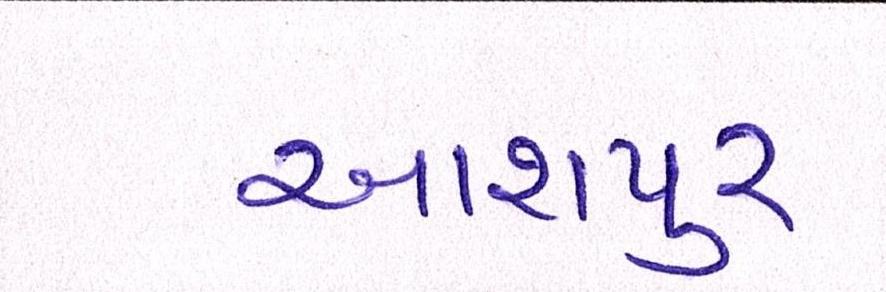 આશપુર